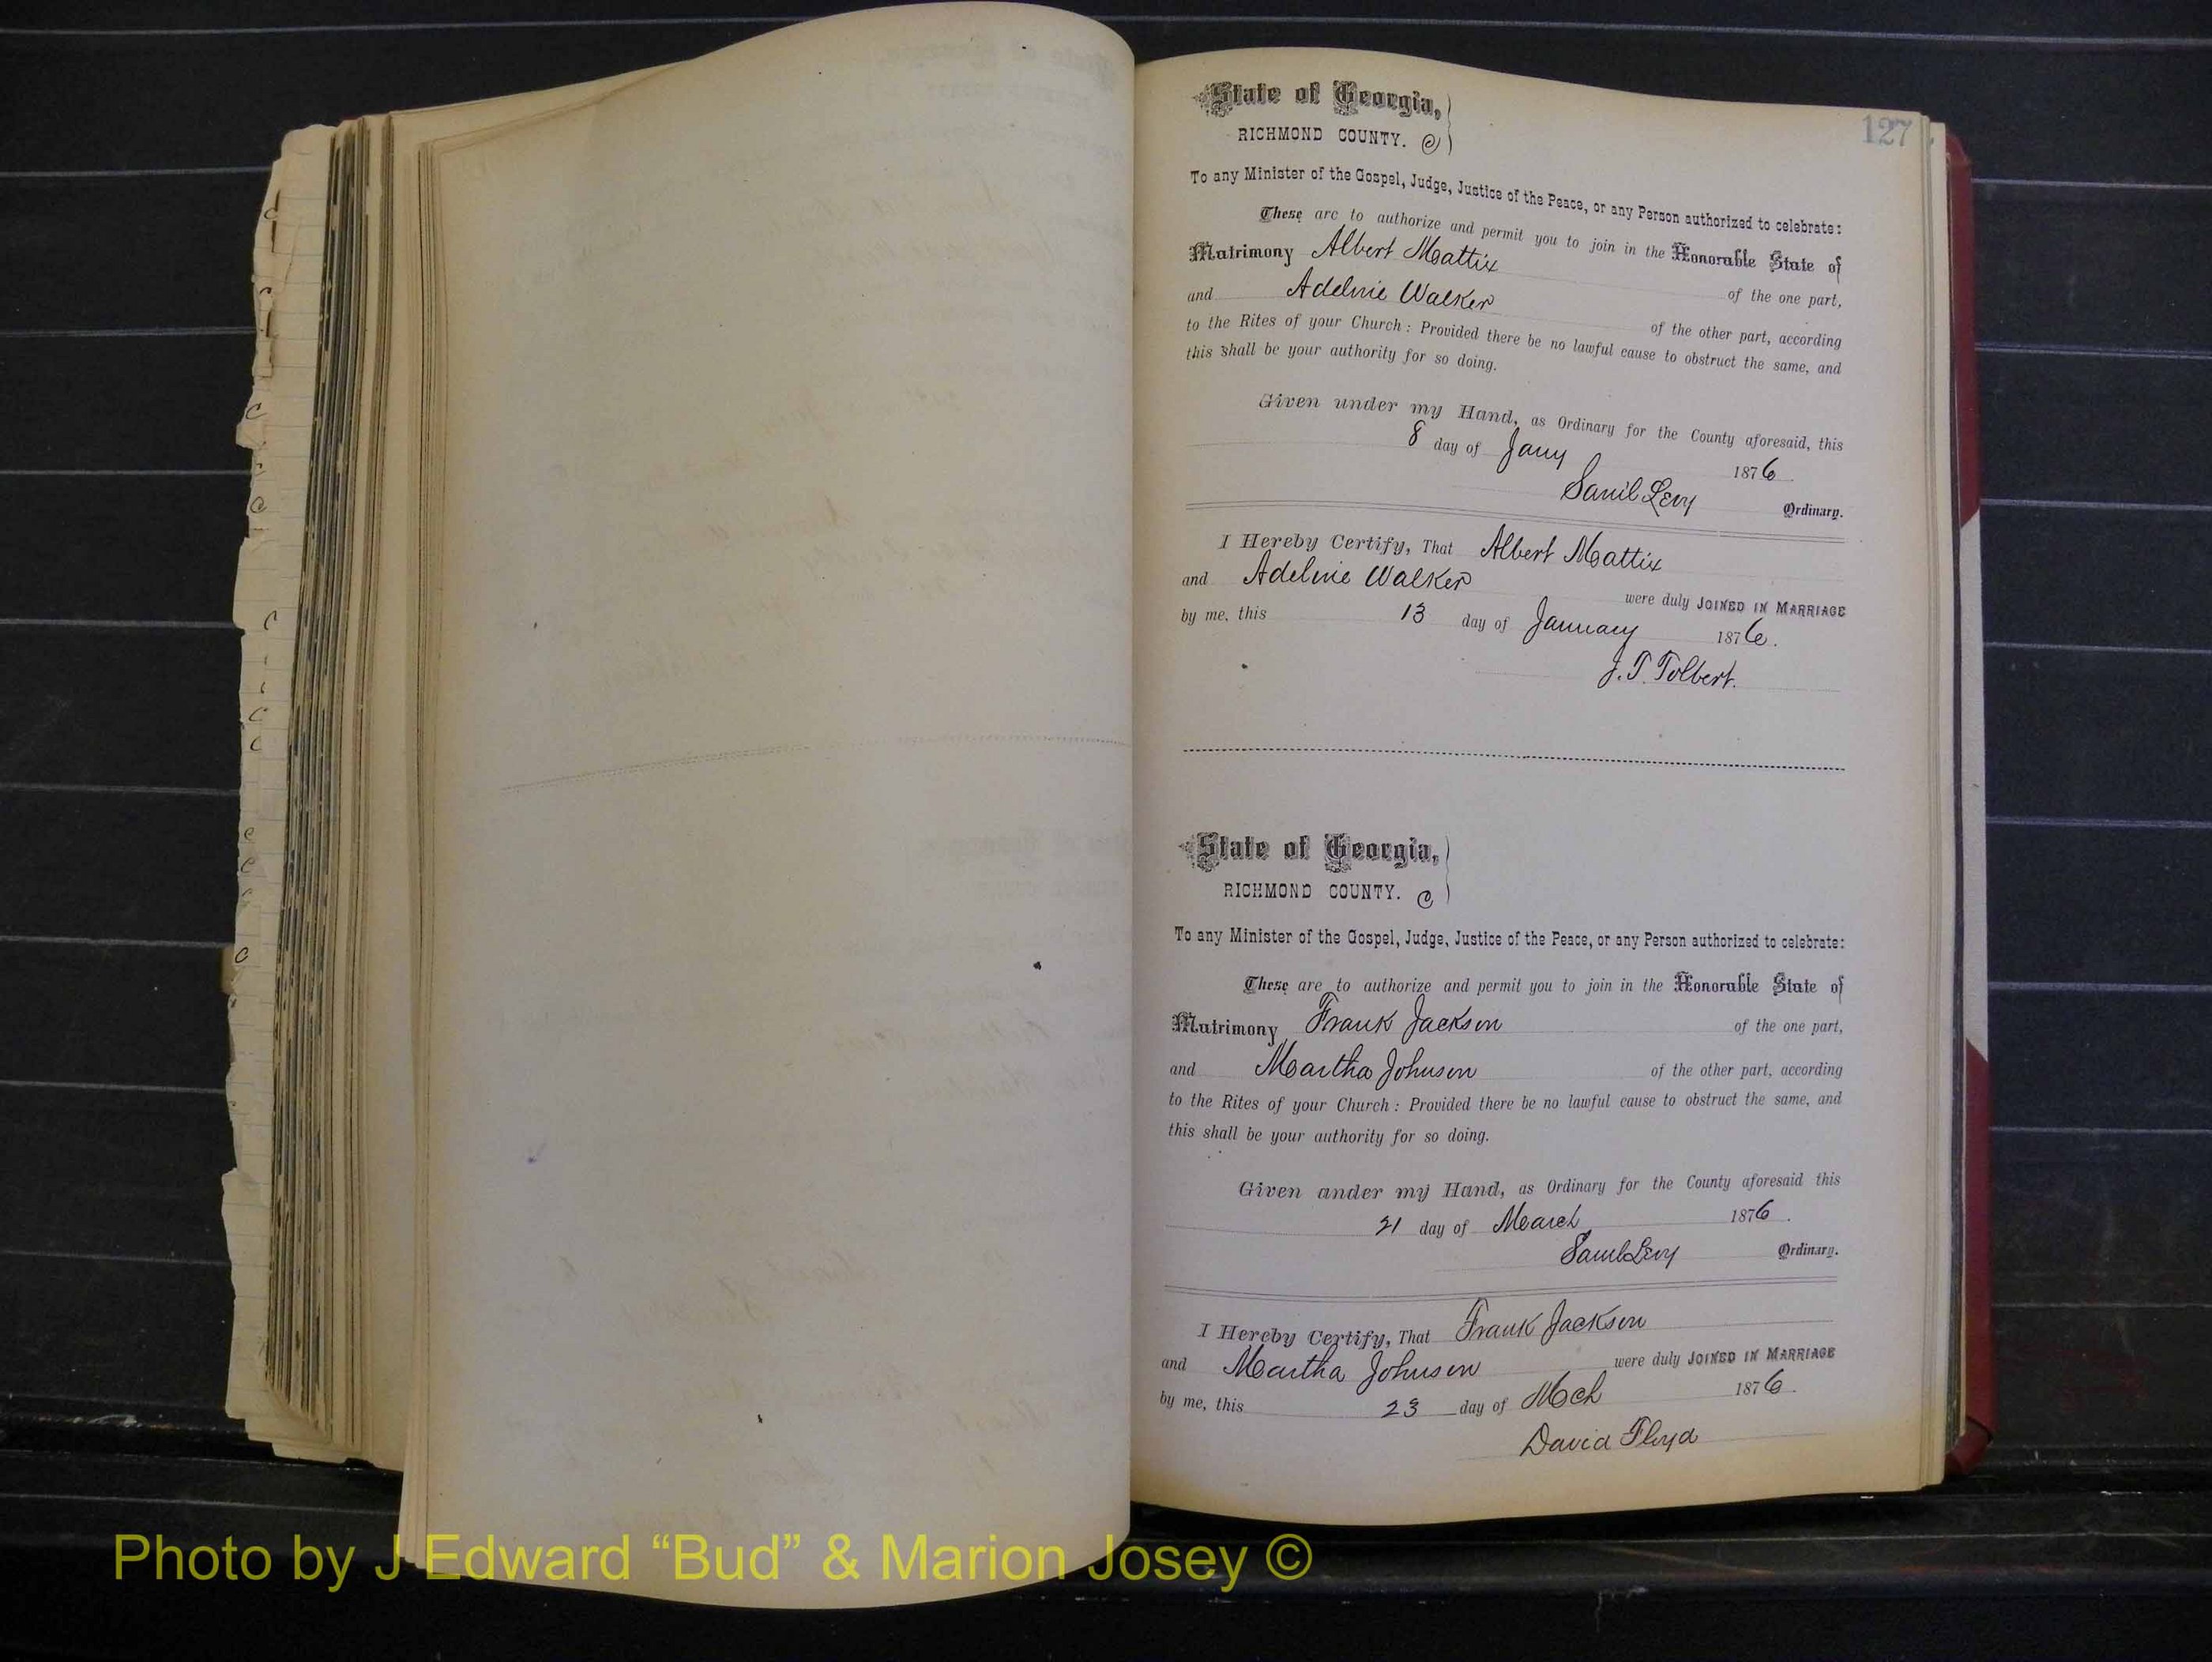 127
State of Georgia,
RICHMOND COUNTY. C
To any Minister of the Gospel, Judge, Justice of the Peace, or any Person authorized to celebrate:
These are to authorize and permit you to join in the Honorable State of
Matrimony Albert Mattix of the one part,
and Adeline Walker of the other part, according
to the Rites of your Church: Provided there be no lawful cause to obstruct the same, and
this shall be your authority for so doing.
Given under my Hand, as Ordinary for the County aforesaid, this
8 day of Jany 1876
Saml Levy Ordinary.
I Hereby Certify, That Albert Mattix
and Adeline Walker were duly JOINED IN MARRIAGE
by me, this 13 day of January 1876.
J. T. Tolbert.
State of Georgia,
RICHMOND COUNTY. C
To any Minister of the Gospel, Judge, Justice of the Peace, or any Person authorized to celebrate:
These are to authorize and permit you to join in the Honorable State of
Matrimony Frank Jackson of the one part,
and Martha Johnson of the other part, according
to the Rites of your Church: Provided there be no lawful cause to obstruct the same, and
this shall be your authority for so doing.
Given under my Hand, as Ordinary for the County aforesaid this
21 day of March 1876.
Saml Levy Ordinary.
I Hereby Certify, That Frank Jackson
and Martha Johnson were duly JOINED IN MARRIAGE
by me, this 23 day of Mch 1876.
David Floyd
Photo by J Edward “Bud” & Marion Josey ©